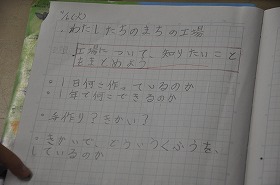 わたしたちのまちの工場
工場について、知りたいこと
をまとめよう
・1日何こ作っているのか
・1年で何こできるのか
・手作り?きかい?
・きかいで、どういうくふうを、
しているのか